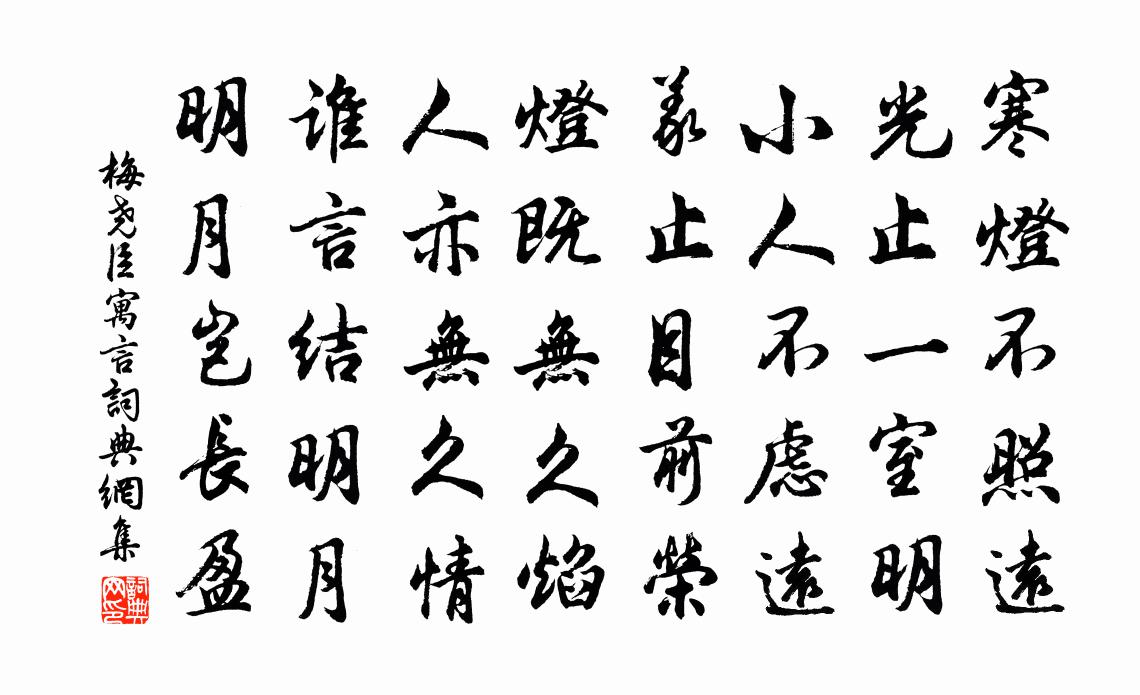 寒燈不照遠
光止一室明
小人不慮遠
義止目前榮
燈既無久焰
人亦無久情
誰言結明月
明月豈長盈
梅尧臣寓言詞典網集
詞典网印